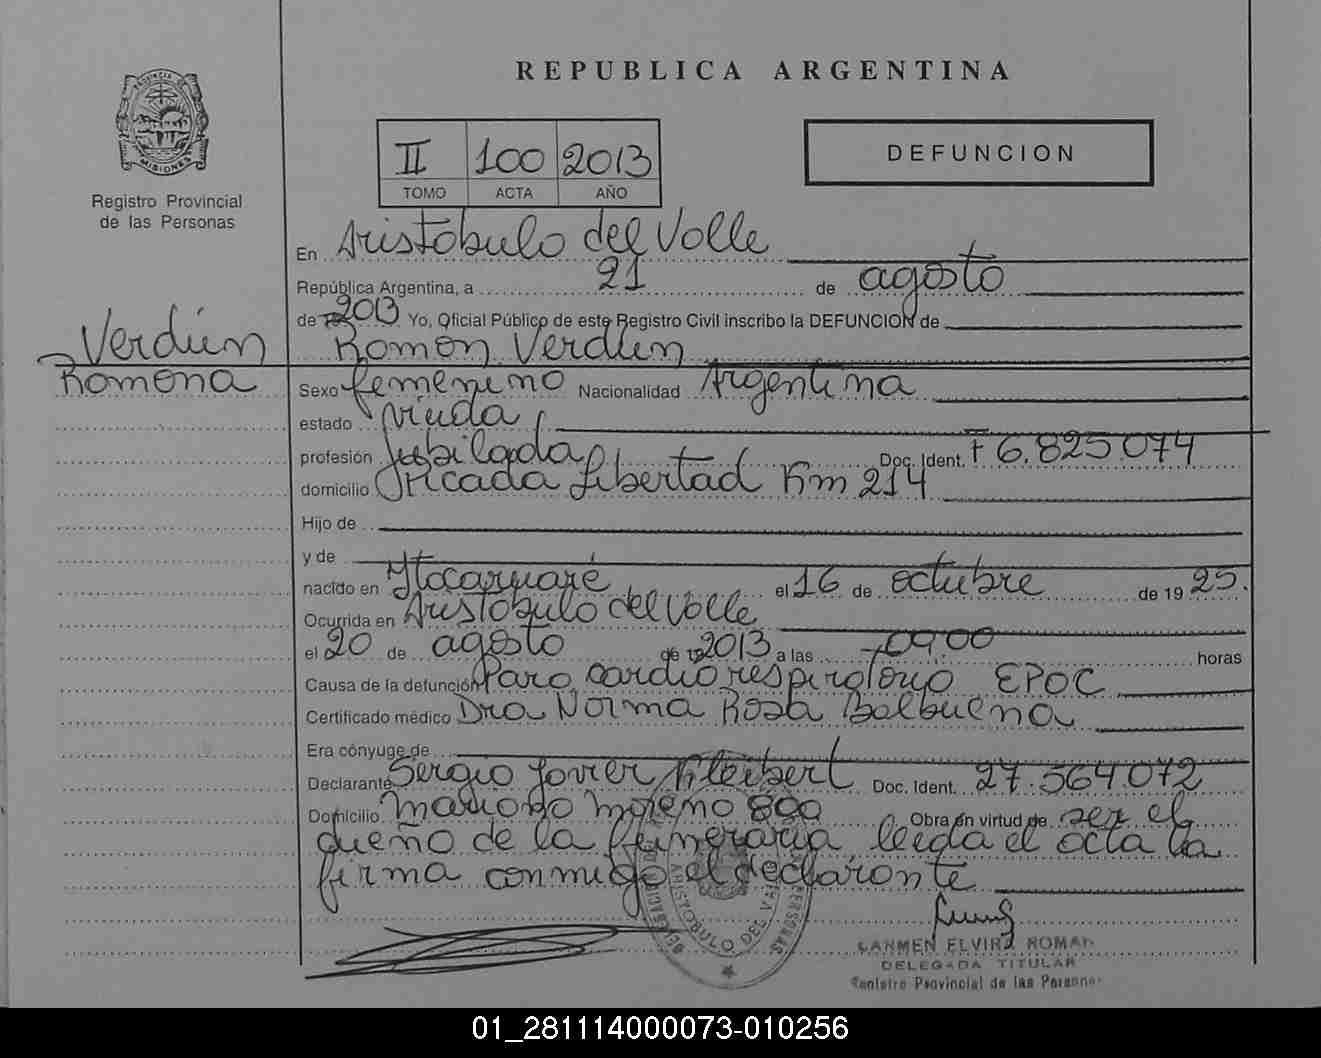 REPUBLICA ARGENTINA
PROVINCIA DE MISIONES
Registro Provincial
de las Personas
II 100 2013
TOMO ACTA AÑO
DEFUNCION
En Aristóbulo del Valle
República Argentina, a 21 de agosto
de 2013 Yo, Oficial Público de este Registro Civil inscribo la DEFUNCION de
Verdún
Ramona
Ramona Verdún
Sexo femenino Nacionalidad Argentina
estado viuda
profesión Jubilada Doc. Ident. F 6.825074
domicilio Picada Libertad Km 214
Hijo de
y de
nacido en Itacaruaré el 16 de octubre de 19 25.
Ocurrida en Aristóbulo del Valle
el 20 de agosto de 2013 a las 09:00 horas
Causa de la defunción Paro cardiorespiratorio EPOC
Certificado médico Dra Norma Rosa Balbuena
Era cónyuge de
Declarante Sergio Javier Kleibert Doc. Ident. 27.564.072
Domicilio Mariano Moreno 800 Obra en virtud de ser el
dueño de la funeraria leida el acta la
firma conmigo el declarante
CARMEN ELVIRA ROMAN
DELEGADA TITULAR
Registro Provincial de las Personas
01_281114000073-010256